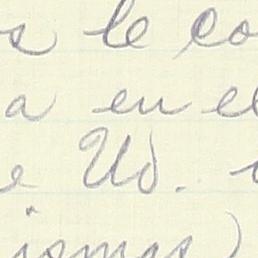 s le co
a en el
e Ud.
ismas)